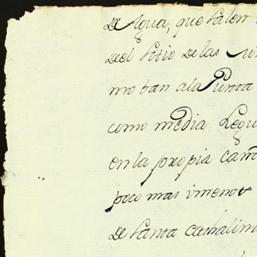 de Agua, que salen
del Potio de las
mo van ala Punta
como media Legu
en la propia cañ
poco mas imenos
de Santa cathalin